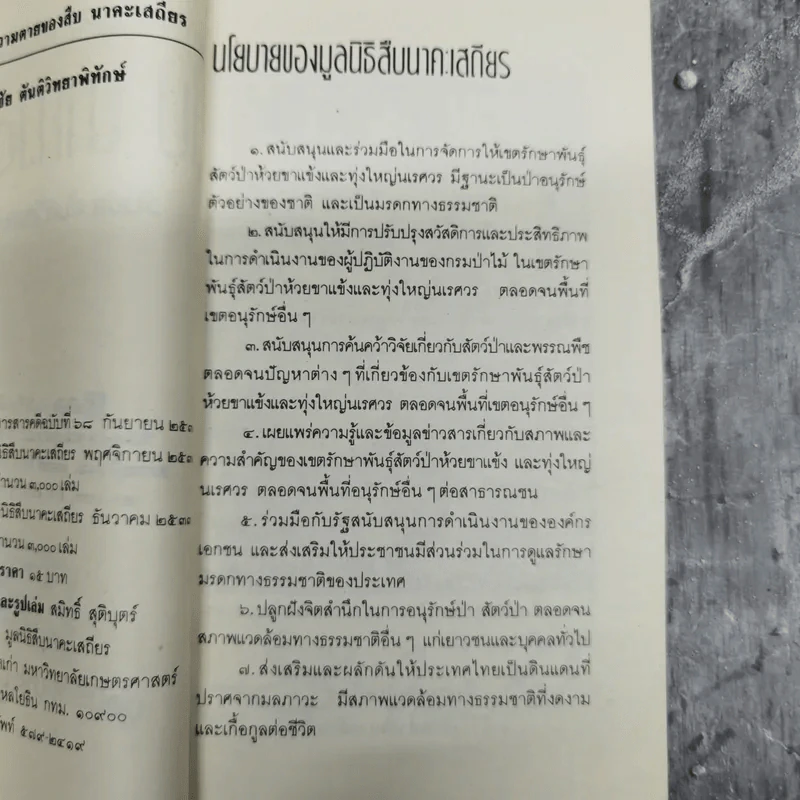 วามตายของสืบ นาคะเสถียร
ชัย ตันติวิทยาพิทักษ์
การสารคดีฉบับที่ ๖๘ กันยายน ๒๕๓
นิธิสืบนาคะเสถียร พฤศจิกายน ๒๕๓
จำนวน ๓,๐๐๐ เล่ม
นิธิสืบนาคะเสถียร ธันวาคม ๒๕๓๓
จำนวน ๓,๐๐๐ เล่ม
ราคา ๑๕ บาท
ละรูปเล่ม สมิทธิ์ สุติบุตร์
มูลนิธิสืบนาคะเสถียร
เก่า มหาวิทยาลัยเกษตรศาสตร์
หลโยธิน กทม. ๑๐๙๐๐
ศัพท์ ๕๗๙-๒๔๑๙
นโยบายของมูลนิธิสืบนาคะเสถียร
๑. สนับสนุนและร่วมมือในการจัดการให้เขตรักษาพันธุ์
สัตว์ป่าห้วยขาแข้งและทุ่งใหญ่นเรศวร มีฐานะเป็นป่าอนุรักษ์
ตัวอย่างของชาติ และเป็นมรดกทางธรรมชาติ
๒. สนับสนุนให้มีการปรับปรุงสวัสดิการและประสิทธิภาพ
ในการดำเนินงานของผู้ปฏิบัติงานของกรมป่าไม้ ในเขตรักษา
พันธุ์สัตว์ป่าห้วยขาแข้งและทุ่งใหญ่นเรศวร ตลอดจนพื้นที่
เขตอนุรักษ์อื่น ๆ
๓. สนับสนุนการค้นคว้าวิจัยเกี่ยวกับสัตว์ป่าและพรรณพืช
ตลอดจนปัญหาต่าง ๆ ที่เกี่ยวข้องกับเขตรักษาพันธุ์สัตว์ป่า
ห้วยขาแข้งและทุ่งใหญ่นเรศวร ตลอดจนพื้นที่เขตอนุรักษ์อื่น ๆ
๔. เผยแพร่ความรู้และข้อมูลข่าวสารเกี่ยวกับสภาพและ
ความสำคัญของเขตรักษาพันธุ์สัตว์ป่าห้วยขาแข้ง และทุ่งใหญ่
นเรศวร ตลอดจนพื้นที่อนุรักษ์อื่น ๆ ต่อสาธารณชน
๕. ร่วมมือกับรัฐสนับสนุนการดำเนินงานขององค์กร
เอกชน และส่งเสริมให้ประชาชนมีส่วนร่วมในการดูแลรักษา
มรดกทางธรรมชาติของประเทศ
๖. ปลูกฝังจิตสำนึกในการอนุรักษ์ป่า สัตว์ป่า ตลอดจน
สภาพแวดล้อมทางธรรมชาติอื่น ๆ แก่เยาวชนและบุคคลทั่วไป
๗. ส่งเสริมและผลักดันให้ประเทศไทยเป็นดินแดนที่
ปราศจากมลภาวะ มีสภาพแวดล้อมทางธรรมชาติที่งดงาม
และเกื้อกูลต่อชีวิต